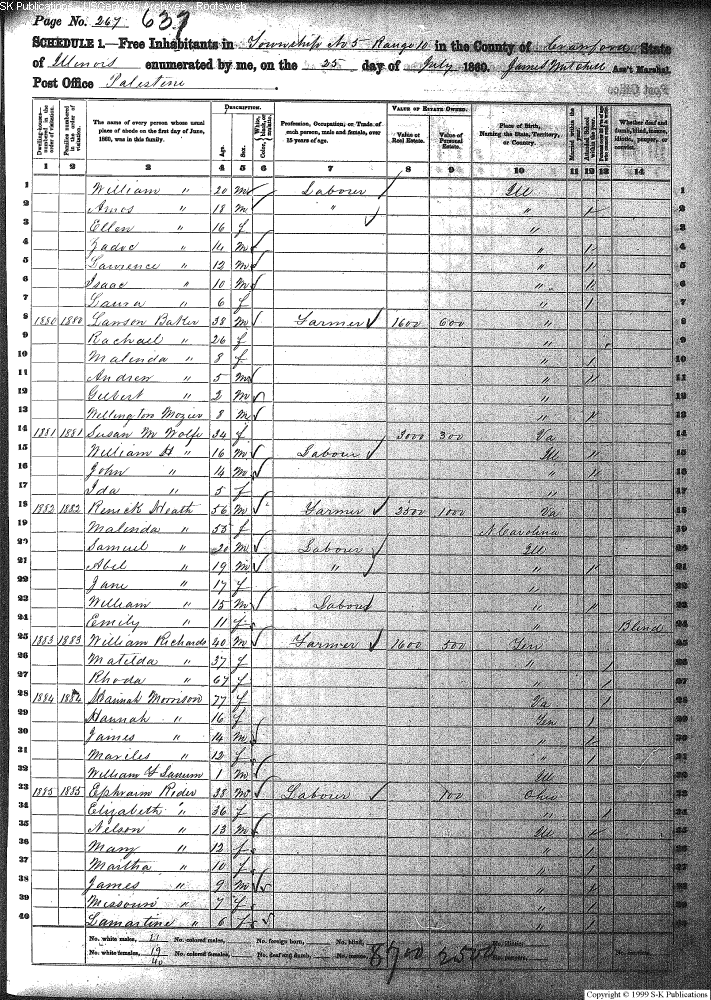 SK Publications - USGenWeb Archives - Rootsweb
Page No. 267 637
SCHEDULE 1.—Free Inhabitants in Township No 5 Range 10 in the County of Crawford State
of Illinois enumerated by me, on the 25 day of July 1860. James Mitchell Ass't Marshal.
Post Office Palestine
Dwelling-houses numbered in the order of visitation. Families numbered in the order of visitation. The name of every person whose usual place of abode on the first day of June, 1860, was in this family. DESCRIPTION. Age. Sex. Color, White, black, or mulatto. Profession, Occupation, or Trade of each person, male and female, over 15 years of age. VALUE OF ESTATE OWNED. Value of Real Estate. Value of Personal Estate. Place of Birth, Naming the State, Territory, or Country. Married within the year. Attended School within the year. Whether deaf and dumb, blind, insane, idiotic, pauper, or convict.
1 2 3 4 5 6 7 8 9 10 11 12 13 14
1 William " 20 m Labourer Ill 1
2 Amos " 18 m " " 2
3 Ellen " 16 f " 3
4 Zadoc " 14 m " 1 4
5 Lawrence " 12 m " 1 5
6 Isaac " 10 m " 1 6
7 Laura " 6 f " 1 7
8 1880 1880 Lanson Baker 38 m Farmer 1600 600 " 8
9 Rachael " 26 f " 9
10 Malinda " 8 f " 1 10
11 Andrew " 5 m " 11
12 Gilbert " 2 m " 12
13 Wellington Mozier 8 m " 13
14 1881 1881 Susan M Wolfe 34 f 3000 300 Va 14
15 William H " 16 m Labourer Ill 15
16 John " 14 m " 16
17 Ida " 5 f " 17
18 1882 1882 Renick Heath 56 m Farmer 2500 1000 Va 18
19 Malinda " 53 f N Carolina 19
20 Samuel " 20 m Labourer Ill 20
21 Abel " 19 m " " 21
22 Jane " 17 f " 22
23 William " 15 m Labourer " 23
24 Emily " 11 f " Blind 24
25 1883 1883 William Richards 40 m Farmer 1600 500 Ten 25
26 Matilda " 37 f " 1 26
27 Rhoda " 67 f " 1 27
28 1884 1884 Hannah Morrison 77 f Va 1 28
29 Hannah " 16 f Ten 1 29
30 James " 14 m " 1 30
31 Mariles " 12 f " 1 31
32 William Y Lanum 1 m Ill 32
33 1885 1885 Ephraim Rider 38 m Labourer 100 Ohio 33
34 Elizabeth " 36 f " 1 34
35 Nelson " 13 m Ill 35
36 Mary " 12 f " 1 36
37 Martha " 10 f " 1 37
38 James " 9 m " 1 38
39 Missouri " 7 f " 1 39
40 Lamartine " 6 f " 1 40
No. white males, 21 No. colored males, No. foreign born, No. blind, 8700 2500
No. white females, 19 No. colored females, No. deaf and dumb, No. insane,
40
Copyright © 1999 S-K Publications